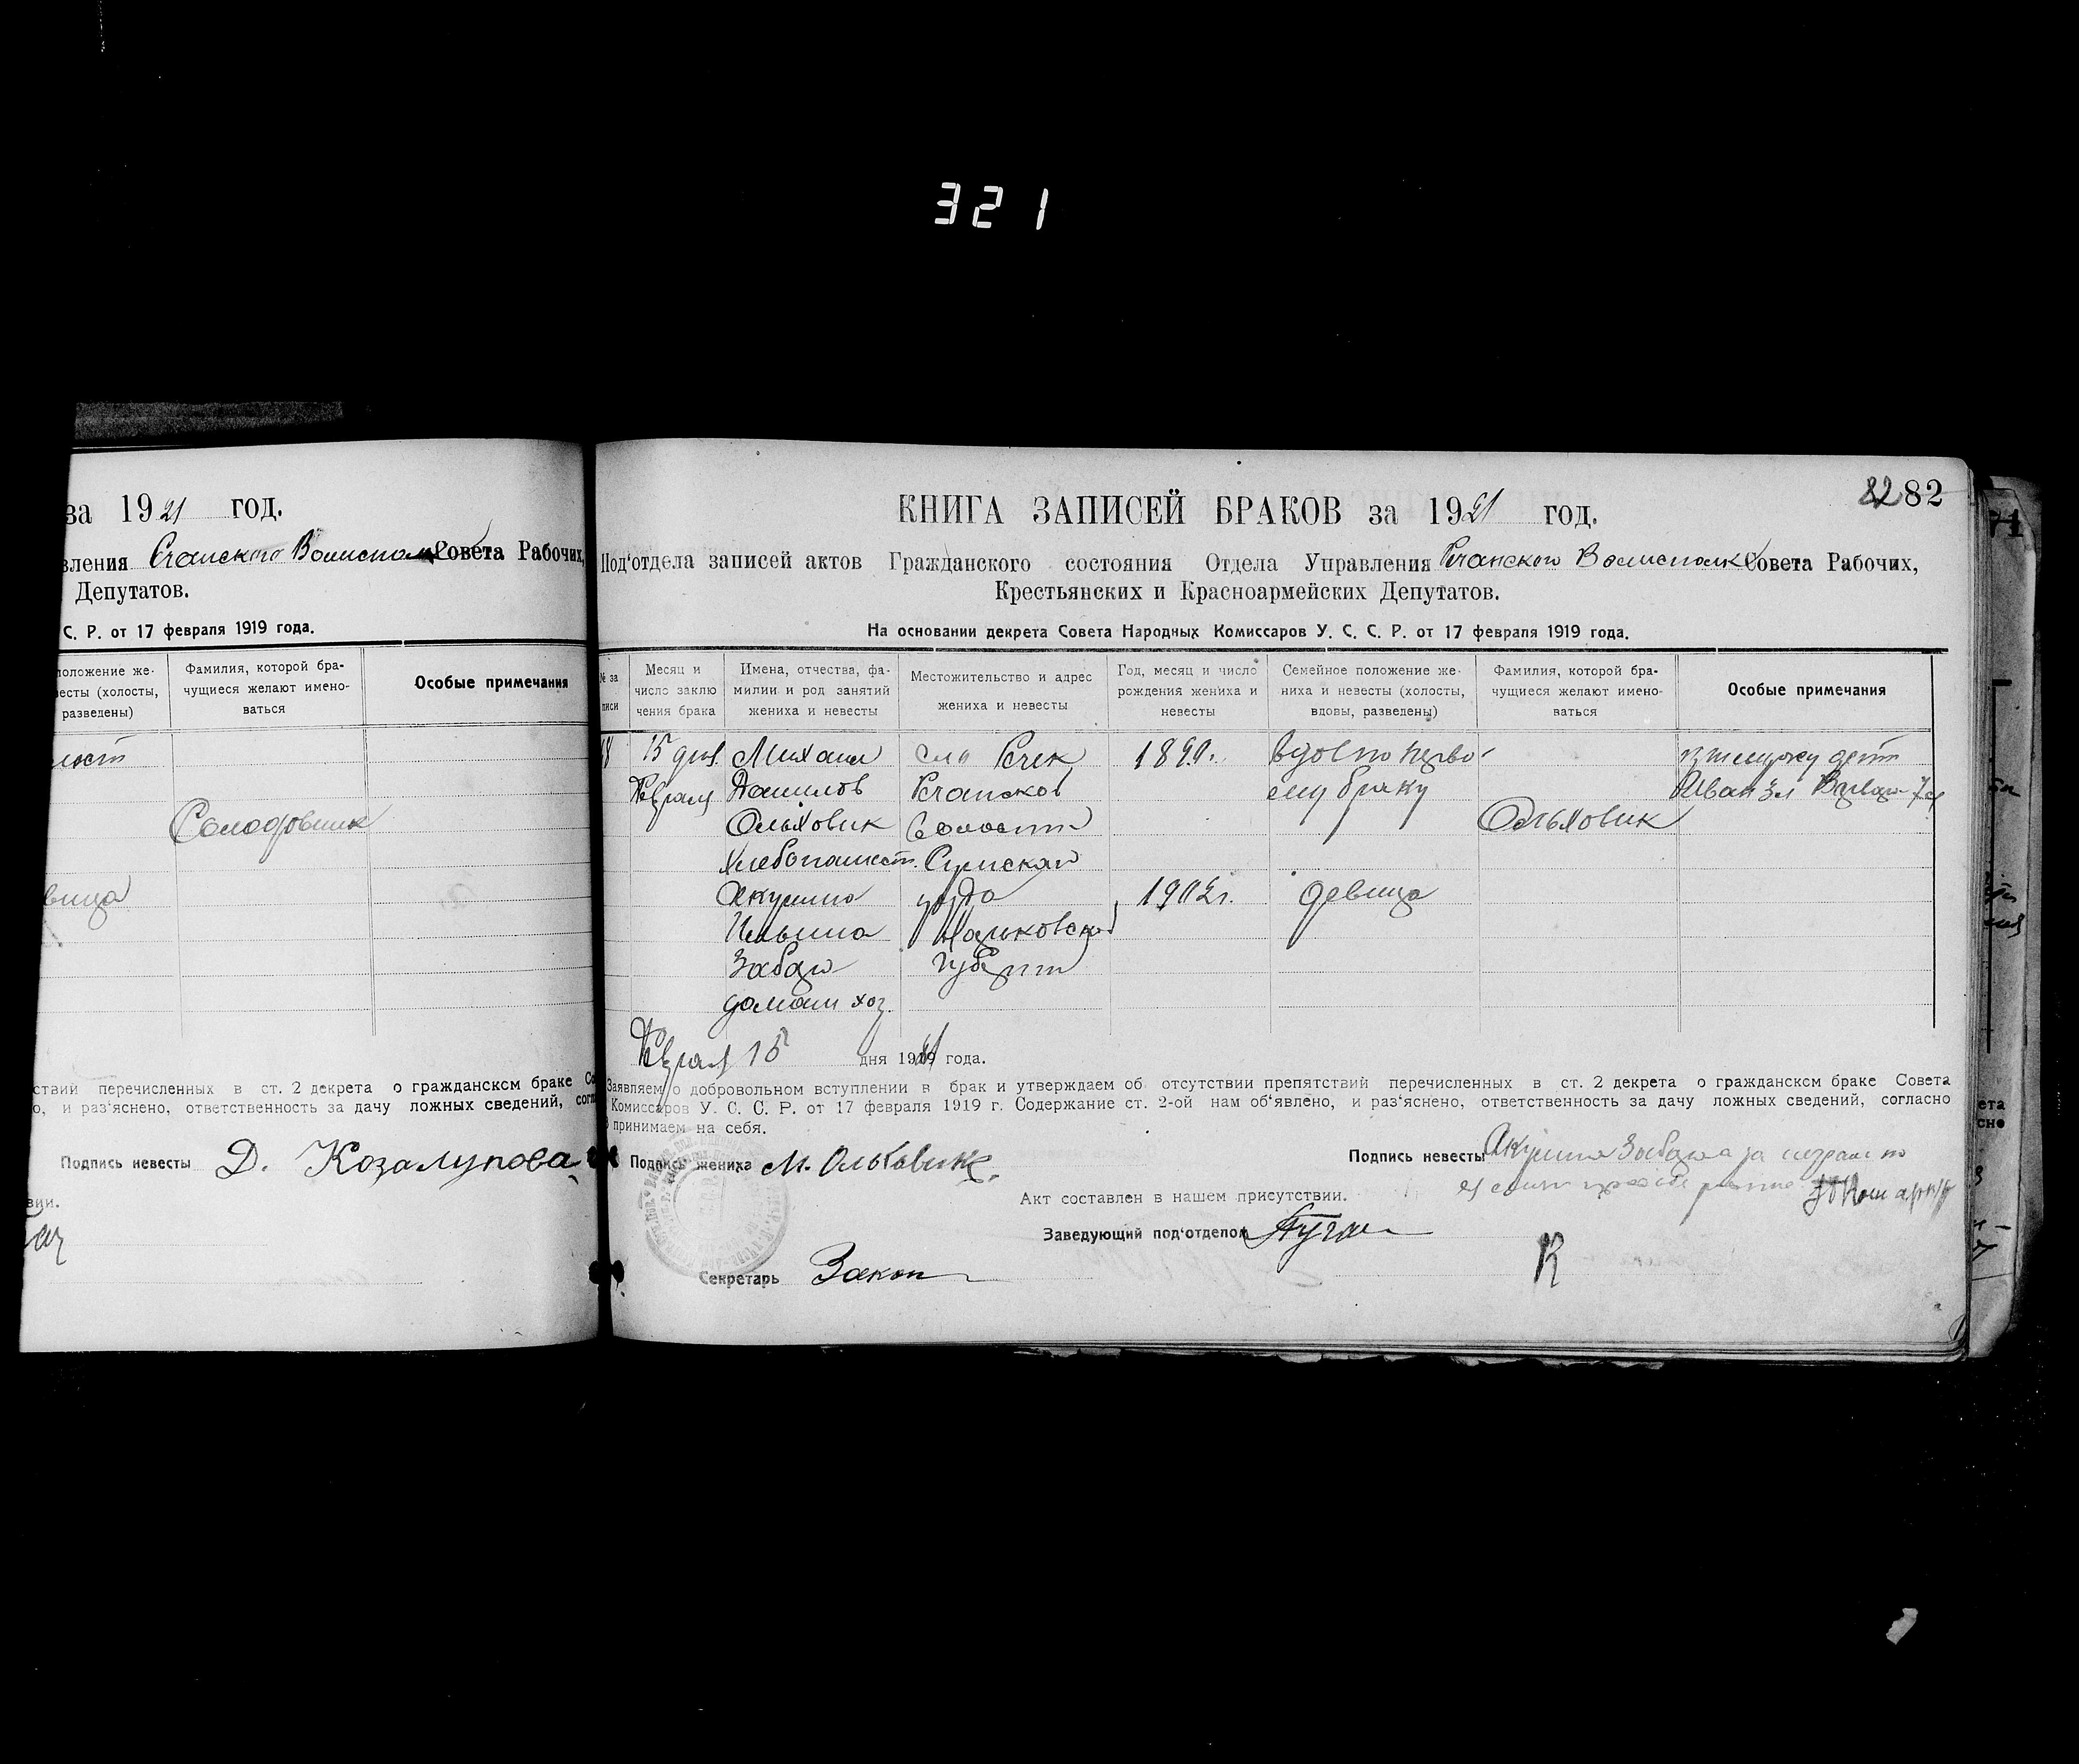 321
за 1921 год.
вления Речанского Волисполк. Совета Рабочих,
Депутатов.
С. Р. от 17 февраля 1919 года.
положение же-
весты (холосты,
разведены)
Фамилия, которой бра-
чущиеся желают имено-
ваться
Особые примечания
Солодовник
вица
ствий перечисленных в ст. 2 декрета о гражданском браке Со
о, и раз'яснено, ответственность за дачу ложных сведений, согл
Подпись невесты Д. Козалупова
вии.
82 82
КНИГА ЗАПИСЕЙ БРАКОВ за 1921 год.
Под'отдела записей актов Гражданского состояния Отдела Управления Речанского Волисполк Совета Рабочих,
Крестьянских и Красноармейских Депутатов.
На основании декрета Совета Народных Комиссаров У. С. С. Р. от 17 февраля 1919 года.
№ за
писи
Месяц и
число заклю
чения брака
Имена, отчества, фа-
милии и род занятий
жениха и невесты
Местожительство и адрес
жениха и невесты
Год, месяц и число
рождения жениха и
невесты
Семейное положение же-
ниха и невесты (холосты,
вдовы, разведены)
Фамилия, которой бра-
чущиеся желают имено-
ваться
Особые примечания
18 15 дня Михаил Речек 1890г. вдов по перво-
Февраля Данилов Речанской ему браку Иван 3л
Ольховик волости Ольховик
хлебопашест. Сумского
Акулина уезда 1902г. девица
Ильина Харьковской
Забара губернии
домаш хоз.
Февраля 15 дня 1921 года.
Заявляем о добровольном вступлении в брак и утверждаем об отсутствии препятствий перечисленных в ст. 2 декрета о гражданском браке Совета
Комиссаров У. С. С. Р. от 17 февраля 1919 г. Содержание ст. 2-ой нам об'явлено, и раз'яснено, ответственность за дачу ложных сведений, согласно
принимаем на себя.
Подпись жениха М. Ольховик.
Подпись невесты Акулина
Акт составлен в нашем присутствии.
Заведующий под'отделом
Секретарь
71